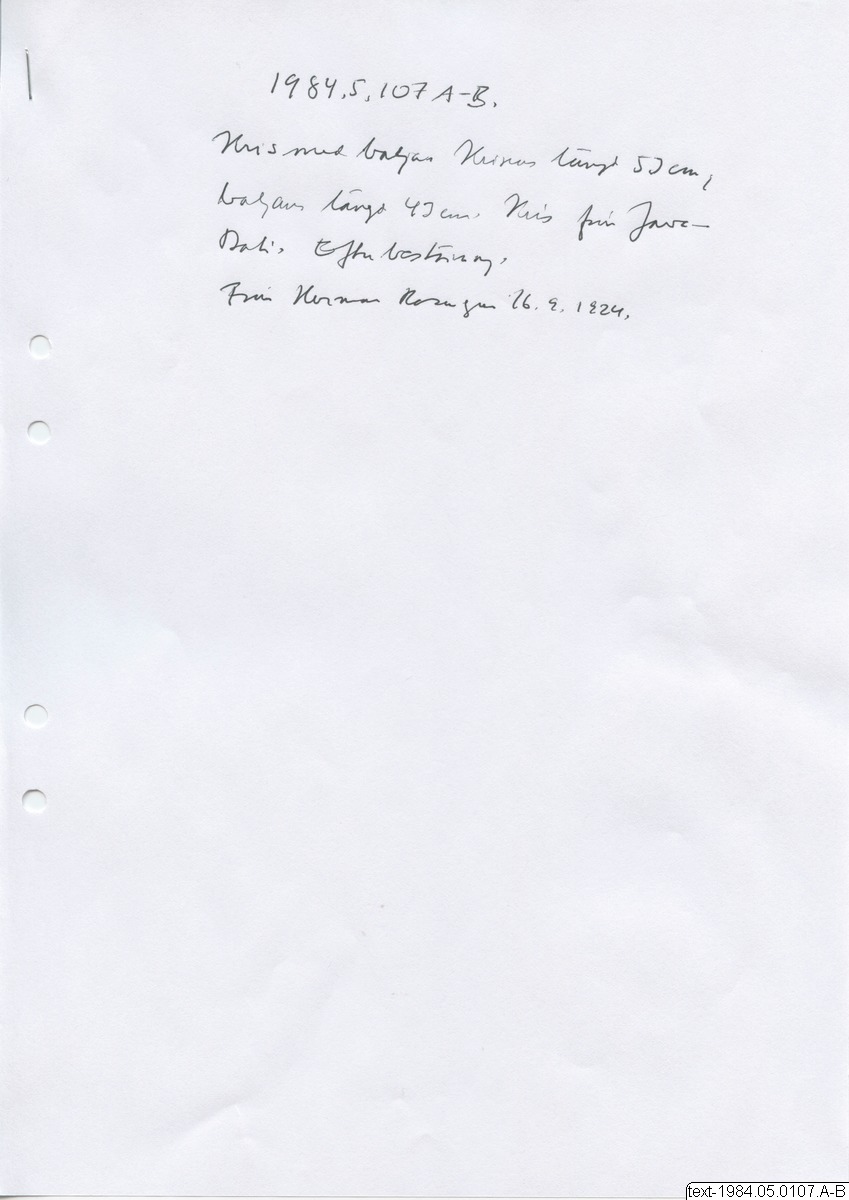 1984.5.107 A-B.
Kris med baljan Krisens längd 53 cm,
baljans längd 43 cm. Kris från Java-
Bali. Efter bestämning.
Från Herman 16.9.1924.
text-1984.05.0107.A-B